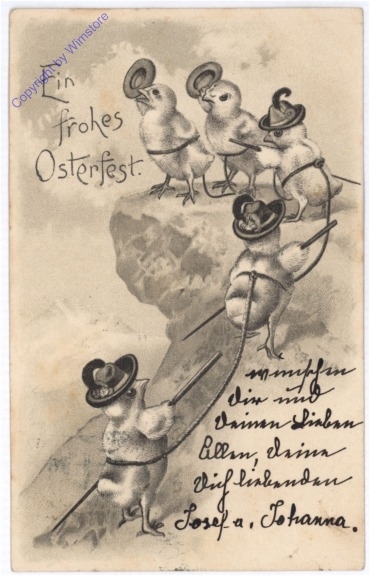 Copyright by Wimstore
Ein
frohes
Osterfest.
wünschen
dir und
deinen Lieben
Allen, deine
Dich liebenden
Josef u. Johanna.